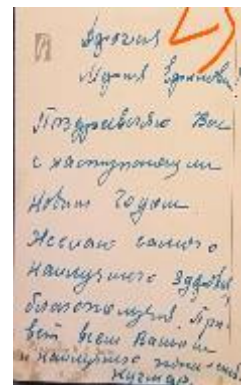 Дорогая
Мария
Поздравляю Вас
с наступающим
Новым Годом.
Желаю самого
наилучшего здоровья,
благополучия. При-
вет всем Вашим
и наилучшие пожелания